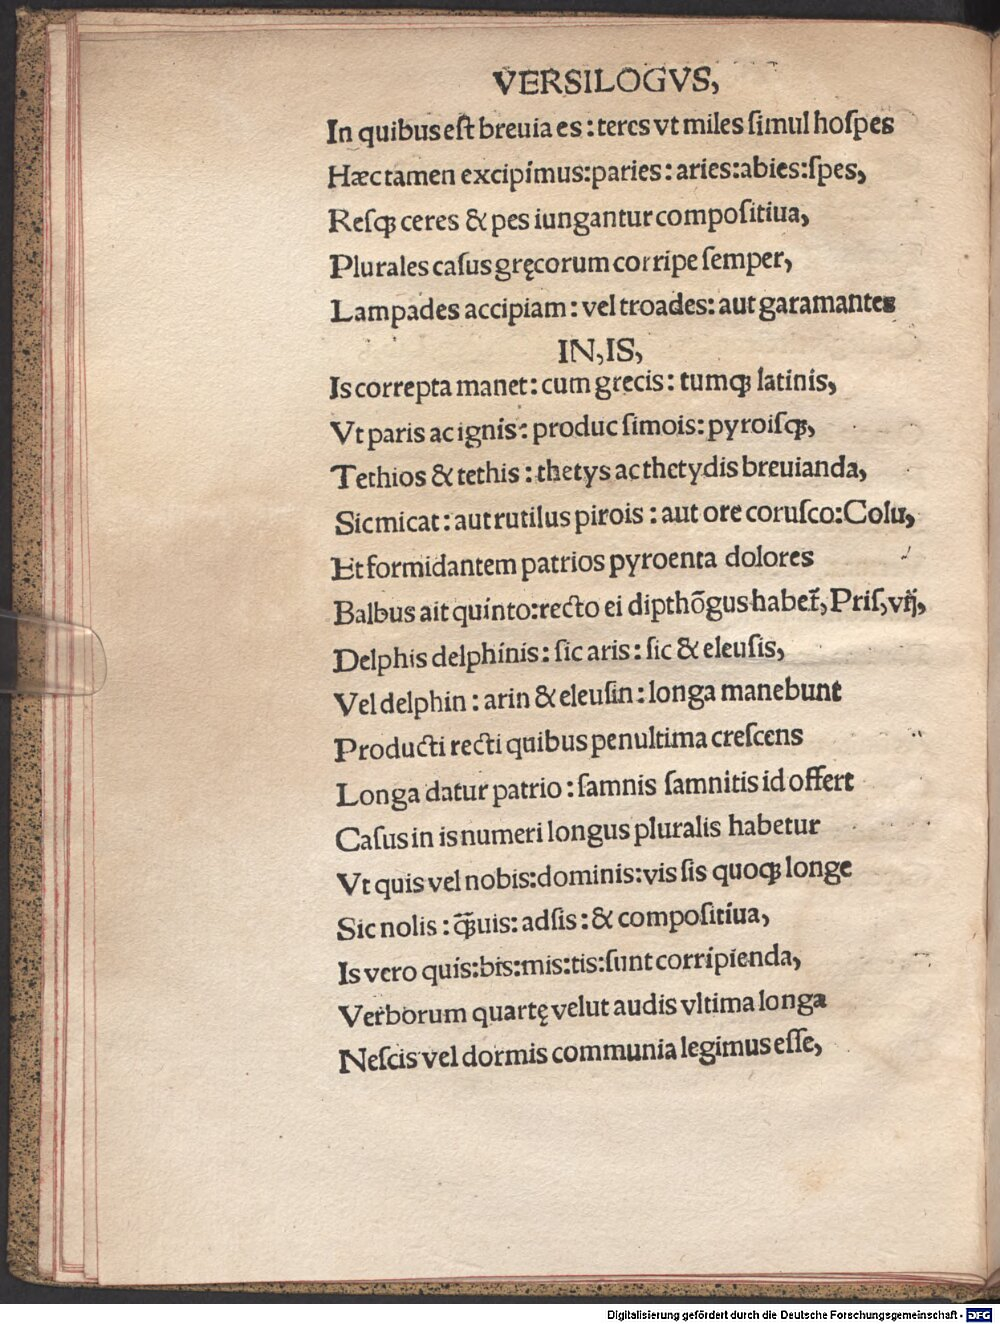 VERSILOGVS,
In quibus eſt breuia es : teres vt miles ſimul hoſpes
Hæc tamen excipimus:paries: aries:abies:ſpes,
Reſqꝫ ceres & pes iungantur compoſitiua,
Plurales caſus gręcorum corripe ſemper,
Lampades accipiam : vel troades: aut garamantes
IN,IS,
Is correpta manet: cum grecis: tumqꝫ latinis,
Vt paris ac ignis: produc ſimois: pyroiſqꝫ,
Tethios & tethis : thetys ac thetydis breuianda,
Sic micat: aut rutilus pirois : aut ore coruſco:Colu,
Et formidantem patrios pyroenta dolores
Balbus ait quinto:recto ei dipthōgus habet̄, Priſ,vij,
Delphis delphinis: ſic aris: ſic & eleuſis,
Vel delphin : arin & eleuſin : longa manebunt
Producti recti quibus penultima creſcens
Longa datur patrio : ſamnis ſamnitis id offert
Caſus in is numeri longus pluralis habetur
Vt quis vel nobis:dominis:vis ſis quoqꝫ longe
Sic nolis : q̄̃uis: adſis : & compoſitiua,
Is vero quis:bis:mis:tis:ſunt corripienda,
Verborum quartę velut audis vltima longa
Neſcis vel dormis communia legimus eſſe,
Digitalisierung gefördert durch die Deutsche Forschungsgemeinschaft - DFG